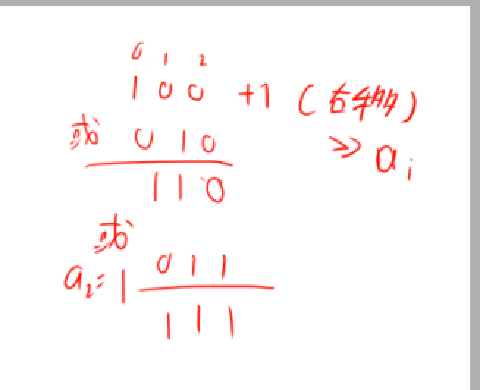 0 1 2
1 0 0 +1 (右移)
或 0 1 0 >> a₁
1 1 0
或
a₂=1 0 1 1
1 1 1